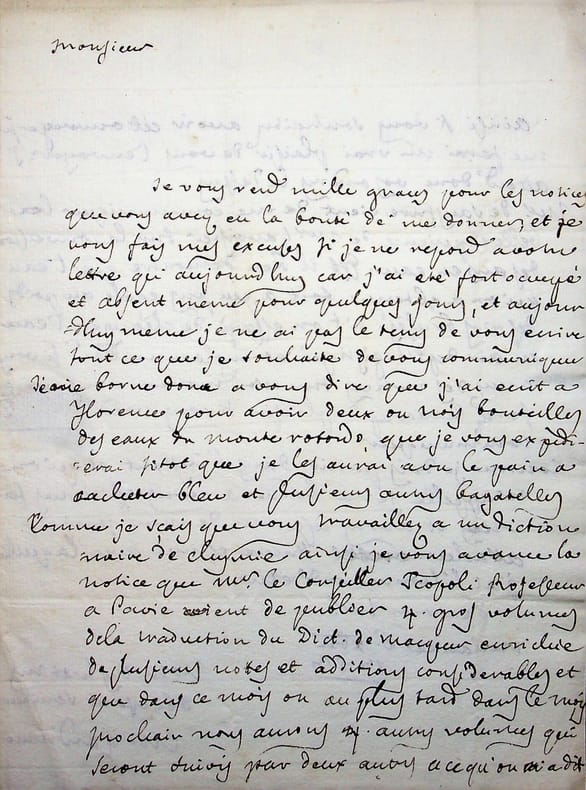 Monsieur
Je vous rend mille graces pour les notices
que vous avez eu la bonté de me donner, et je
vous fais mes excuses si je ne repond a votre
lettre qui aujourdhuy car j'ai eté fort occupé
et absent meme pour quelques jours, et aujour
dhuy meme je ne ai pas le tems de vous ecrire
tout ce que je souhaite de vous communiquer
Je me borne donc a vous dire que j'ai ecrit a
Florence pour avoir deux ou trois bouteilles
des eaux du monte rotondo, que je vous expedi-
erai sitot que je les aurai avec le pain a
cacheter bleu et plusieurs autres bagatelles
Comme je sçais que vous travaillez a un diction
naire de chymie ainsi je vous avance la
notice que Mr. le Conseiller Scopoli Professeur
a Pavie vient de publier 4. gros volumes
de la traduction du Dict. de macquer enrichie
de plusieurs notes et additions considerables et
que dans ce mois ou au plus tard dans le mois
prochain nous aurons 4. autres volumes qui
seront suivis par deux autres a ce qu'on m'a dit